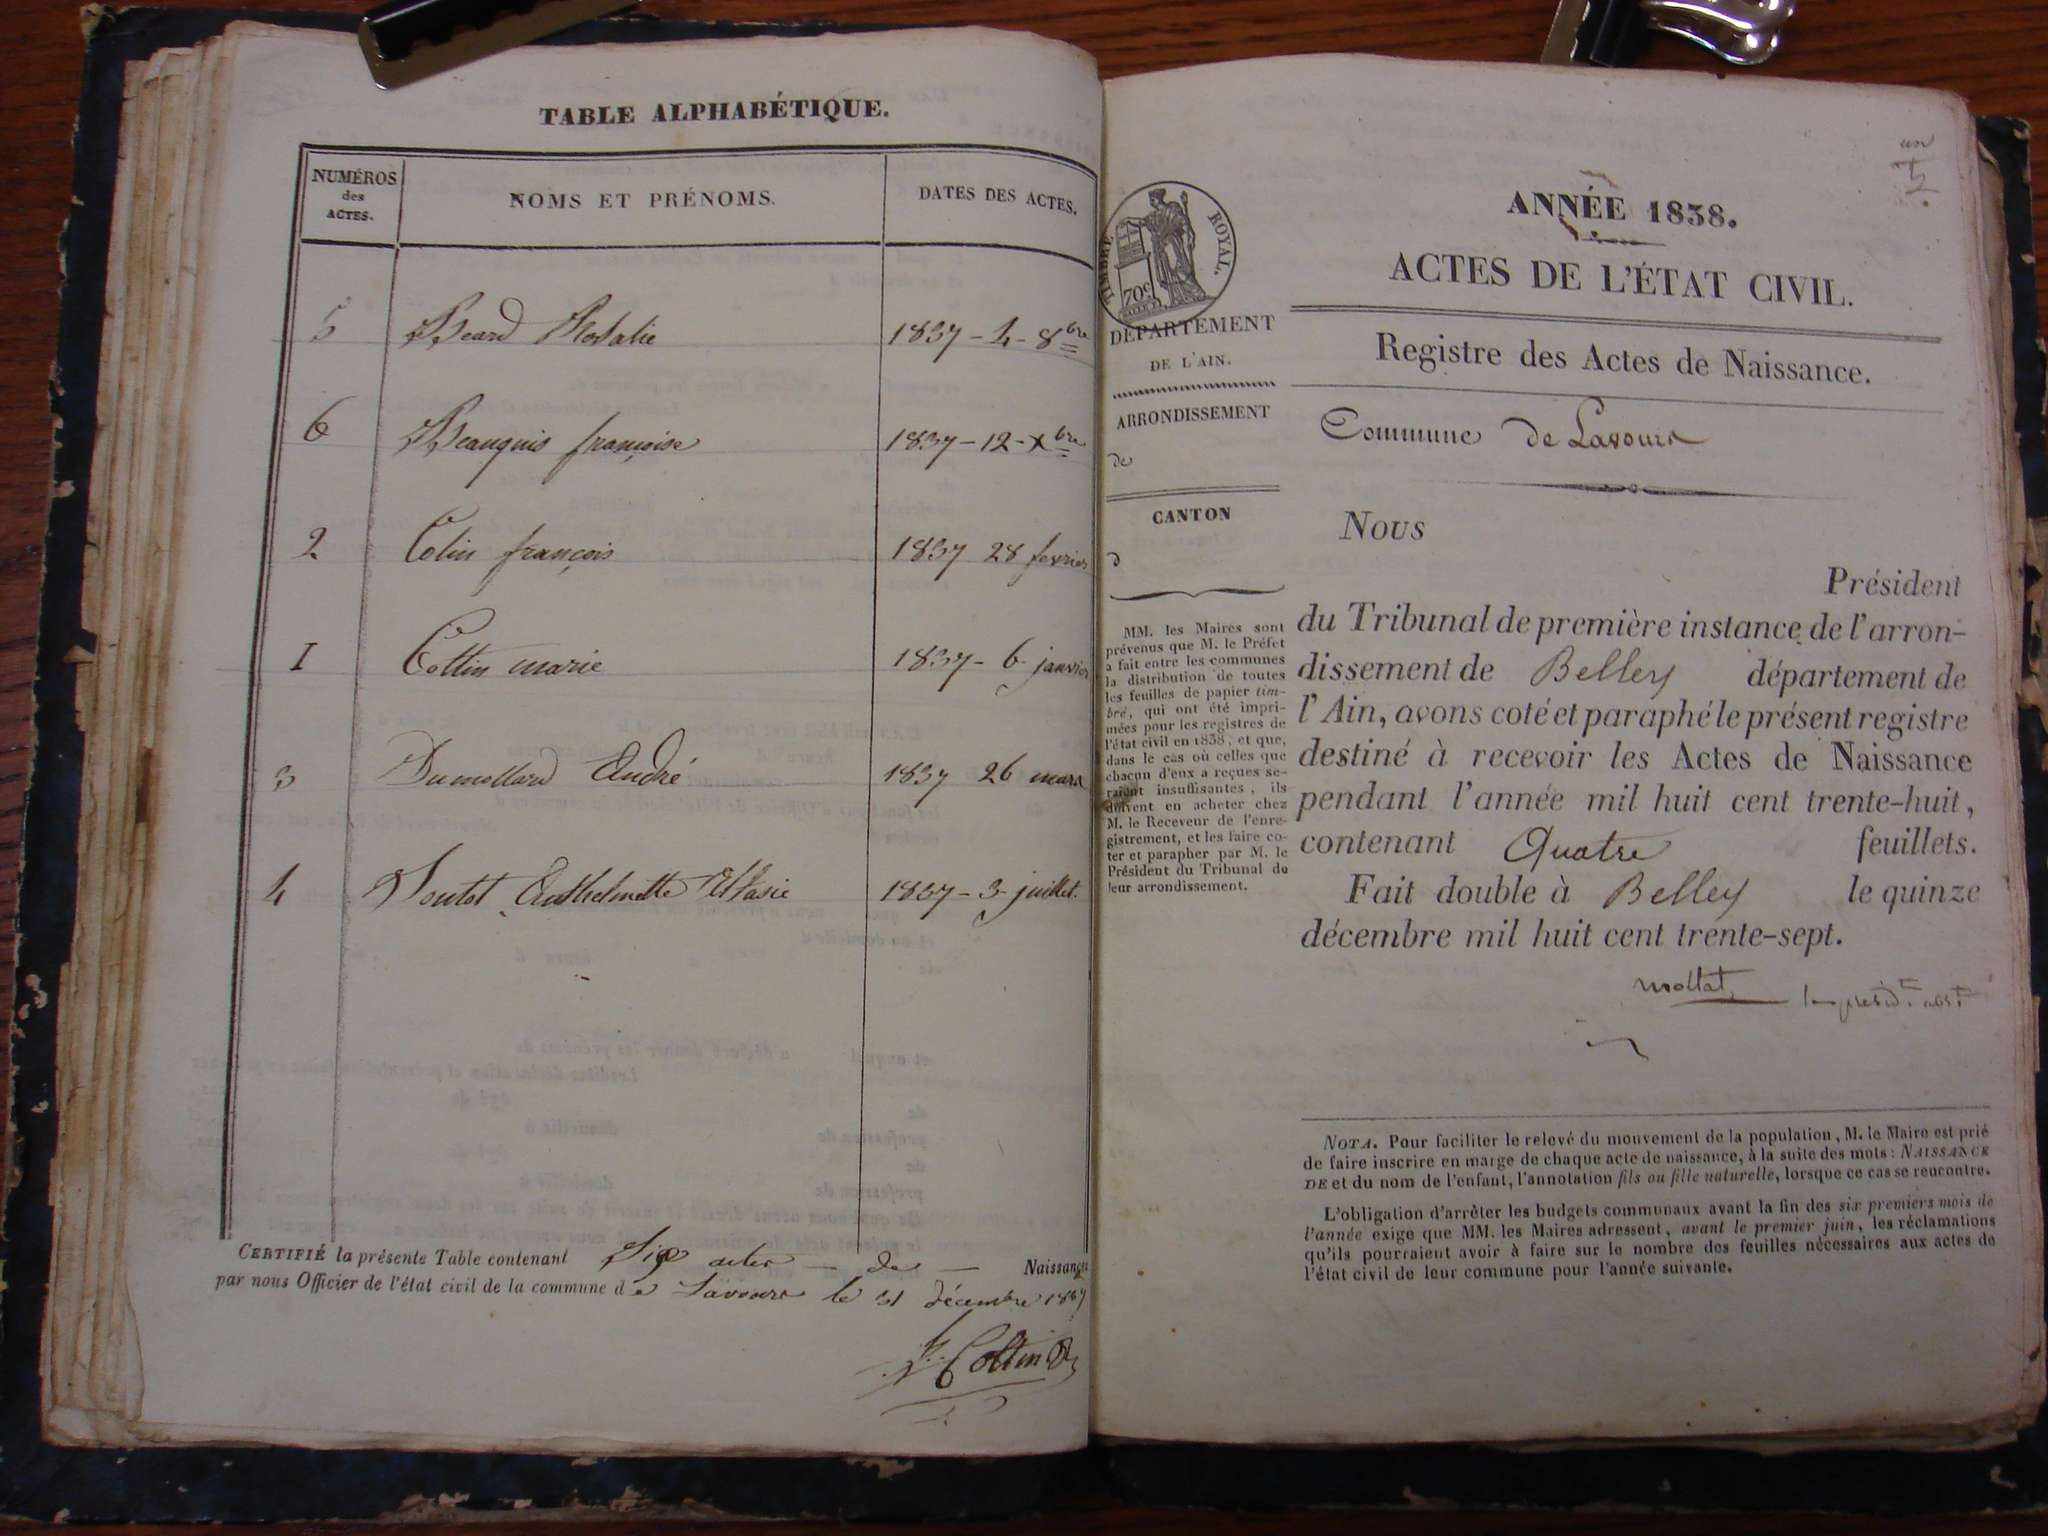 TABLE ALPHABÉTIQUE.
NUMÉROS
des
ACTES.
NOMS ET PRÉNOMS.
DATES DES ACTES.
5 Beard Rosalie 1837 - 4 - 8bre
6 Beauquis françoise 1837 - 12 - Xbre
2 Colin françois 1837 28 fevrier
1 Cottin marie 1837 - 6 janvier
3 Dumollard André 1837 26 mars
4 Anthelmette 1837 - 3 juillet.
CERTIFIÉ la présente Table contenant Six actes - de - Naissances
par nous Officier de l'état civil de la commune de Lavours le 31 décembre 1837
Cottin
un
ANNÉE 1838.
ACTES DE L'ÉTAT CIVIL.
Registre des Actes de Naissance.
Commune de Lavours
TIMBRE ROYAL.
70c
DÉPARTEMENT
DE L'AIN.
ARRONDISSEMENT
de
CANTON
d
MM. les Maires sont
prévenus que M. le Préfet
a fait entre les communes
la distribution de toutes
les feuilles de papier tim-
bré, qui ont été impri-
mées pour les registres de
l'état civil en 1838, et que,
dans le cas où celles que
chacun d'eux a reçues se-
raient insuffisantes, ils
doivent en acheter chez
M. le Receveur de l'enre-
gistrement, et les faire co-
ter et parapher par M. le
Président du Tribunal de
leur arrondissement.
Nous
Président
du Tribunal de première instance de l'arron-
dissement de Belley département de
l'Ain, avons coté et paraphé le présent registre
destiné à recevoir les Actes de Naissance
pendant l'année mil huit cent trente-huit,
contenant Quatre feuillets.
Fait double à Belley le quinze
décembre mil huit cent trente-sept.
mollat
NOTA. Pour faciliter le relevé du mouvement de la population, M. le Maire est prié
de faire inscrire en marge de chaque acte de naissance, à la suite des mots: NAISSANCE
DE et du nom de l'enfant, l'annotation fils ou fille naturelle, lorsque ce cas se rencontre.
L'obligation d'arrêter les budgets communaux avant la fin des six premiers mois de
l'année exige que MM. les Maires adressent, avant le premier juin, les réclamations
qu'ils pourraient avoir à faire sur le nombre des feuilles nécessaires aux actes de
l'état civil de leur commune pour l'année suivante.